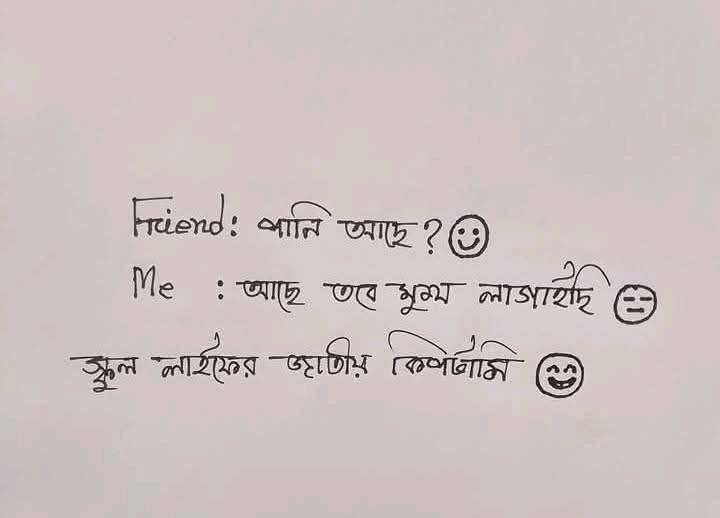 Friend: পানি আছে? ☺
Me : আছে তবে মুখ লাগাইছি 😑
স্কুল লাইফের জাতীয় কিপটামি 😄